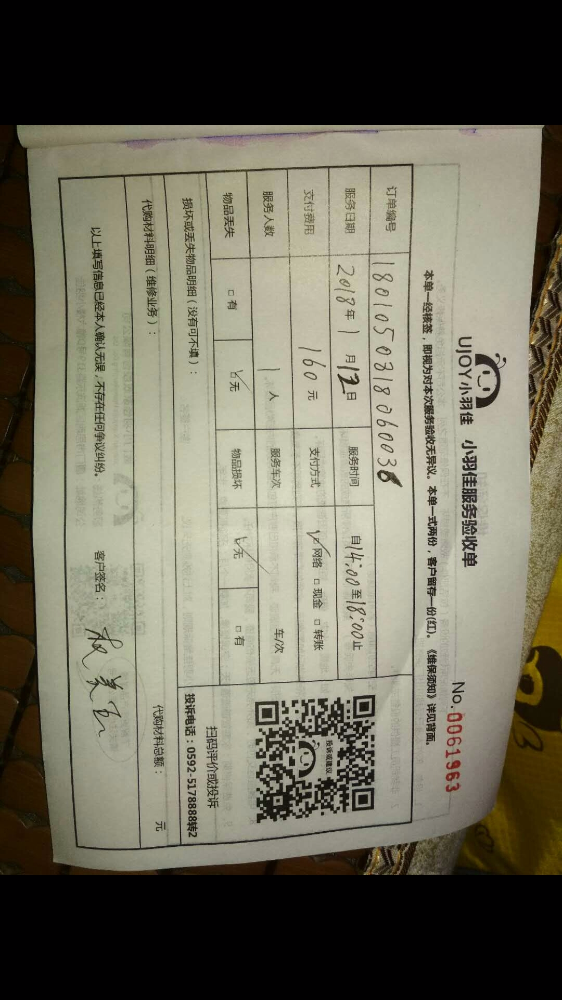 UJOY小羽佳 小羽佳服务验收单
No. 0061963
本单一经核签，即视为对本次服务验收无异议。本单一式两份，客户留存一份(红)。《维保须知》详见背面。
订单编号 180105031806003
服务日期 2018年1月12日 服务时间 自14:00至18:00止
交付费用 160元 支付方式 ☑网络 □现金 □转账
服务人数 1人 服务车次 车/次
物品丢失 □有 ☑无 物品损坏 ☑无 □有
投诉或建议
扫码评价或投诉
投诉电话：0592-5178888转2
损坏或丢失物品明细（没有可不填）：
代购材料明细（维修业务）： 代购材料总额： 元
以上填写信息已经本人确认无误，不存在任何争议纠纷。 客户签名：